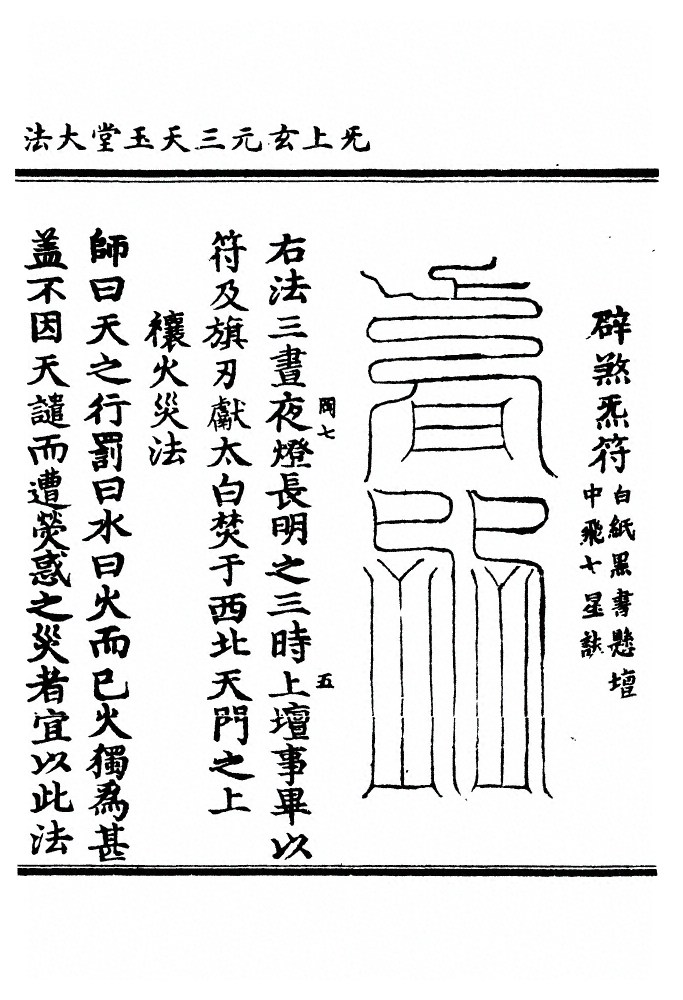 无上玄元三天玉堂大法
辟煞炁符
白紙黑書懸壇
中飛七星訣
右法三晝夜燈長明之三時上壇事畢以
符及旗刃獻太白焚于西北天門之上
禳火災法
師曰天之行罰曰水曰火而已火獨為甚
蓋不因天譴而遭熒惑之災者宜以此法
五